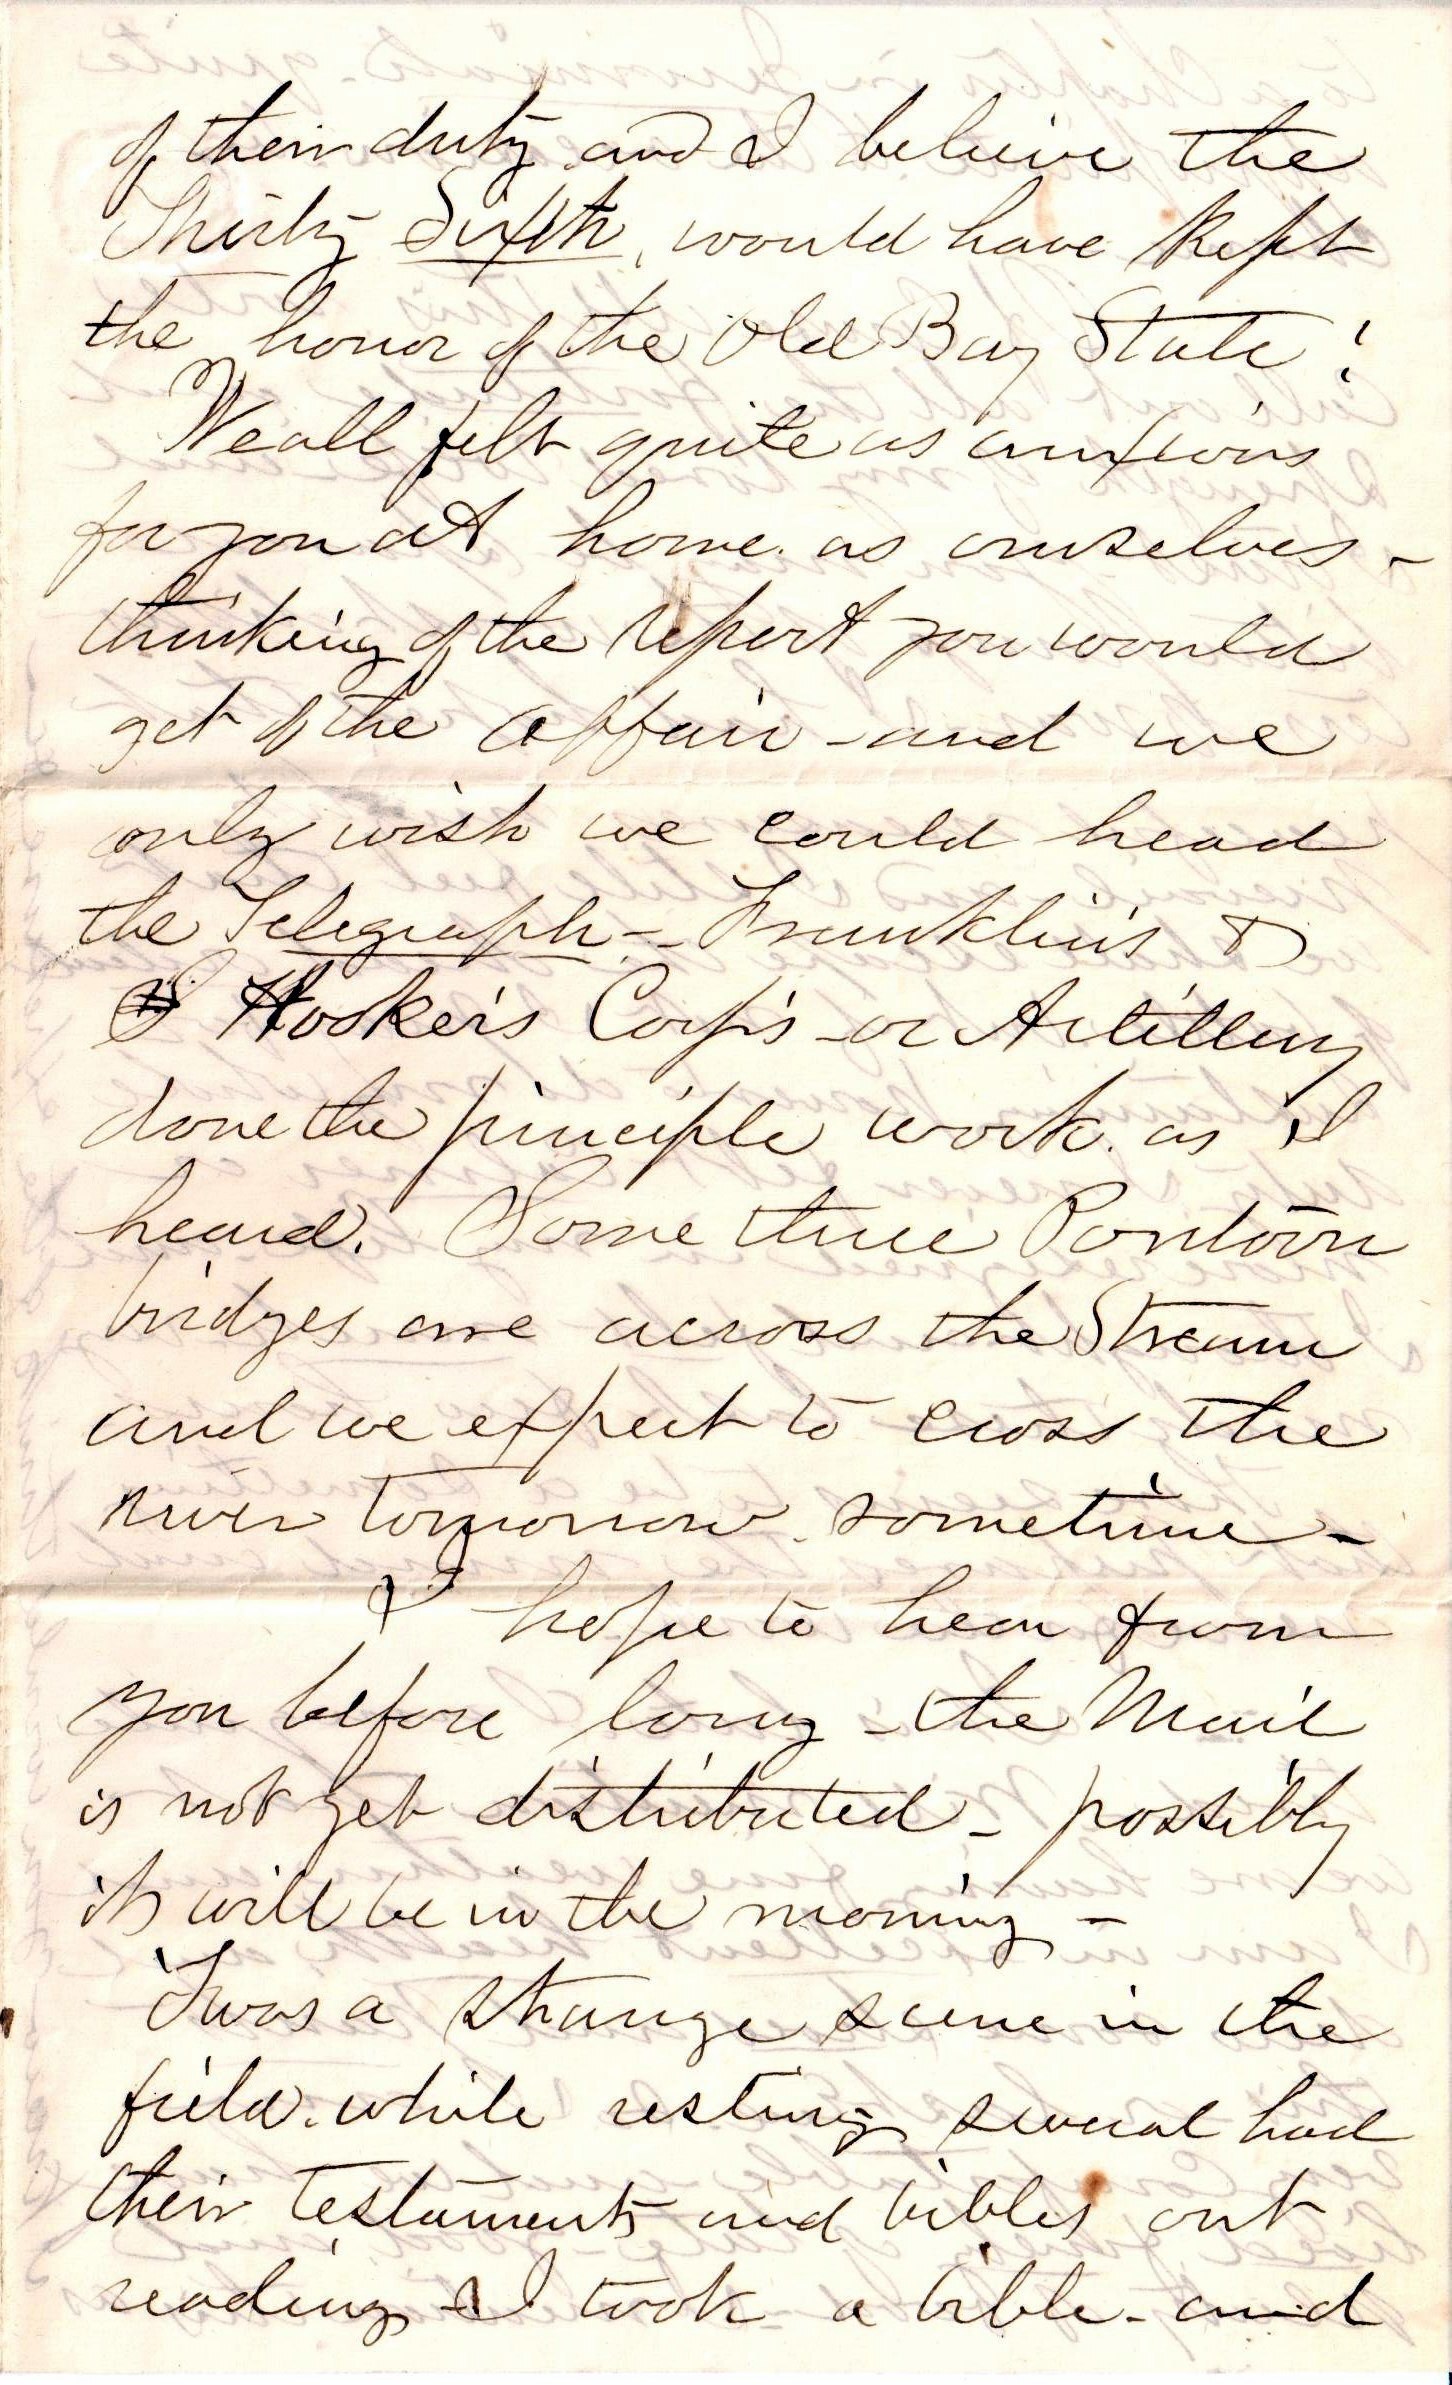 of their duty and I believe the
Thirty Sixth, would have kept
the honor of the Old Bay State!
We all felt quite as anxious
for you at home as ourselves -
thinking of the report you would
get of the affair - and we
only wish we could head
the Telegraph - Franklin's &
Hooker's Corps - or Artillery
done the principle work. as I
heard. Some three Pontoon
bridges are across the Stream
and we expect to cross the
river tomorrow sometime -
I hope to hear from
you before long - the Mail
is not yet distributed - possibly
it will be in the morning -
'Twas a strange scene in the
field. while resting several had
their testaments and bibles out
reading I took a bible - and